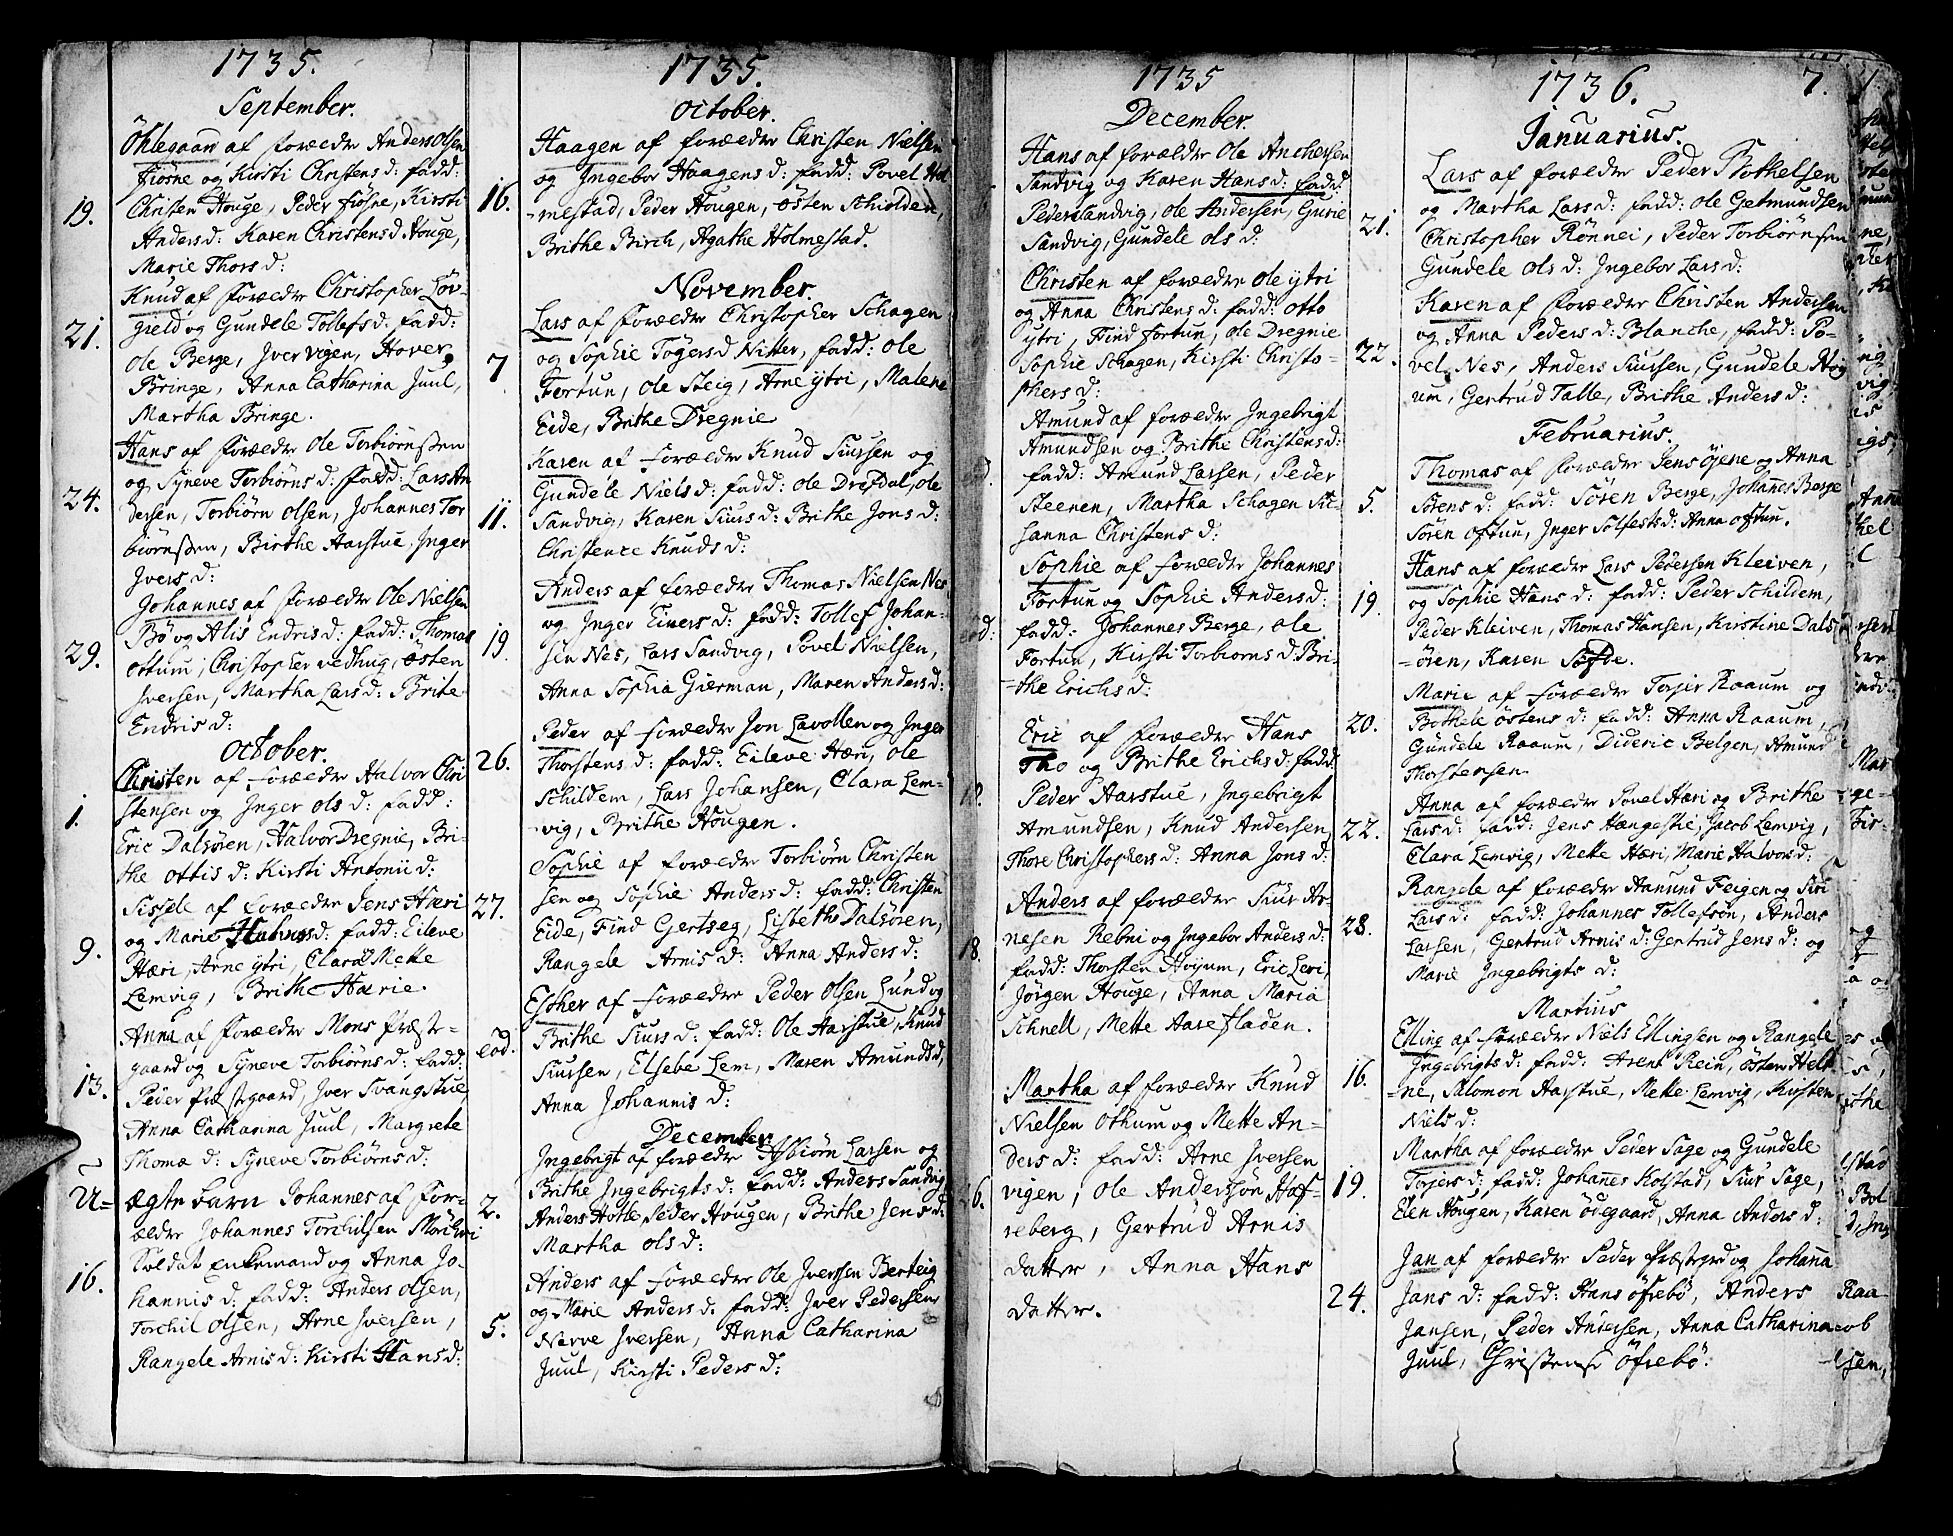 1735.
September.
Öhlegaard af foræeldre Anders Olsen
fiösne og Kirsti Christens d: fadd:
19. Christen Houge, Peder fiösne, Kirsti
Anders d: Karen Christens d Houge,
Marie Thors d:
Knud af Foræeldre Christopher Löv-
21. gield og Gundele Tollefs d: fadd:
Ole Berge, Jver vigen, Hover
Bringe, Anna Catharina Juul,
Martha Bringe.
Hans af Foræeldre Ole Torbiörnssen
og Syneve Torbiörns d: Fadd: Lars An
24. dersen, Torbiörn Olsen, Johannes Tor
biörnssen, Birthe Aarstue, Jnger
Jvers d:
Johannes af Foræeldre Ole Nielsen
Bö og Alis Endris d: fadd: Thomas
29. Ottum, Christopher vedhug, Östen
Jversen, Martha Lars d: Brite
Endris d:
October.
Christen af foræeldre Halvor Chri
1. stensen og Jnger Ols d: fadd:
Eric Dalsören, Halvor Dregnie, Bri-
the Ottis d: Kirsti Antonii d:
Sissele af foræeldre Jens Hæri
9. og Marie d: fadd: Eileve
Hæri, Arne ytri, Clara Mette
Lemvig, Brithe Hærie.
Anna af Foræeldre Mons Præst-
gaard og Syneve Torbiörns d: fadd:
13. Peder Præstgaard, Jver Svangstue
Anna Catharina Juul, Margrete
Thomæ d: Syneve Torbiörns d:
U= ægte barn Johannes af For-
ældre Johannes Torchilsen Mörchri
Soldat enkemand og Anna Jo-
16. hannis d: fadd: Anders Olsen,
Torchil Olsen, Arne Jversen,
Rangele Arnis d: Kirsti Hans d:
1735.
October.
Haagen af foræeldre Christen Nielsen
16. og Jngebor Haagens d: fadd: Povel Hol
-mestad, Peder Hougen, Östen Schiolden,
Brithe Birch, Agathe Holmestad.
November.
Lars af Foræeldre Christopher Schagen
7 og Sophie Tögers d Nitter, fadd: Ole
Fortun, Ole Steig, Arne ytri, Malene
Eide, Brithe Dregnie
Karen af foræeldre Knud Siursen og
Gundele Niels d: fadd: Ole Drefdal, Ole
11. Sandvig, Karen Siurs d: Brithe Jons d:
Christence Knuds d:
Anders af foræeldre Thomas Nielsen Nes
og Jnger Einers d: fadd: Tollef Johan-
19. sen Nes, Lars Sandvig, Povel Nielsen,
Anna Sophia Gierman, Maren Anders d:
Peder af foræeldre Jon Lavollen og Jnger
26. Thorstens d: fadd: Eileve Hæri, Ole
Schildem, Lars Johansen, Clara Lem-
-vig, Brithe Hougen.
Sophie af foræeldre Torbiörn Christen
27. sen og Sophie Anders d: fadd: Christen
Eide, Find Gertseg, Lisbeth Dalsören,
Rangele Arnis d: Anna Anders d:
Esther af foræeldre Peder Olsen Lund og
eod. Brithe Siurs d: fadd: Ole Aarstue, Knud
Siursen, Elsebe Lem, Maren Amunds d,
Anna Johannis d:
December
Jngebrigt af foræeldre Asbiörn Larsen og
2. Brithe Jngebrigts d: fadd: Anders Sandvig
Anders Holle, Peder Hougen, Brithe Jens d:
Martha Ols d:
Anders af foræeldre Ole Jverssen Berteig
5. og Marie Anders d: fadd: Jver Pedersen
Nerve Jversen, Anna Catharina
Juul, Kirsti Peders d:
1735
December.
Hans af foræeldre Ole Anchersen
Sandvig og Karen Hans d: fadd:
Peder Sandvig, Ole Andersen, Gurie
Sandvig, Gundele Ols d:
Christen af foræeldre Ole ytri
og Anna Christens d: fadd: Otto
ytri, Find Fortun, Ole Dregnie
Sophie Schagen, Kirsti Christo-
phers d:
Amund af foræeldre Jngebrigt
Amundsen og Brithe Christens d:
fadd: Amund Larsen, Peder
Steenen, Martha Schagen Su-
sanna Christens d:
Sophie af foræeldre Johannes
eod: Fortun og Sophie Anders d:
fadd: Johannes Berge, Ole
Fortun, Kirsti Torbiorns d. Bri-
-the Erichs d:
Eric af foræeldre Hans
Tho og Brithe Erichs d: fadd
18. Peder Aarstue, Jngebrigt
Amundsen, Knud Andersen,
Thore Christophers d: Anna Jons d:
Anders af foræeldre Siur Ar-
18. nesen Rebni og Jngebor Anders d:
fadd: Thorsten Höyum, Eric Leri
Jörgen Houge, Anna Maria
Schnell, Mette Harefladen.
Martha af foræeldre Knud
Nielsen Othum og Mette An-
ders d: fadd: Arne Jversen
26. vigen, Ole Andersön Hof-
reberg, Gertrud Arnis
datter, Anna Hans
datter.
1736. 7.
Januarius.
Lars af foræeldre Peder Bothelsen
21. og Martha Lars d: fadd: Ole Getmundsen
Christopher Rönnei, Peder Torbiörnsen
Gundele Ols d: Jngebor Lars d:
Karen af foræeldre Christen Andersen
22. og Anna Peders d: Blanche, fadd: Po-
vel Nes, Anders Siursen, Gundele Hög
um, Gertrud Talle, Brithe Anders d:
Februarius.
Thomas af foræeldre Jens Öjene og Anna
5. Sörens d: fadd: Sören Berge, Johanes Berge
Sören Oftun, Jnger Solfests d: Anna Oftun.
Hans af foræeldre Lars Pedersen Kleiven,
19. og Sophie Hans d: fadd: Peder Schildem,
Peder Kleiven, Thomas Hansen, Kirstine Dals
=ören, Karen Söfde.
Marie af foræeldre Torjer Raaum og
20. Bothele Östens d: fadd: Anna Raaum,
Gundele Raaum, Dideric Belgen, Amund
Thorstensen.
Anna af foræeldre Povel Hæri og Brithe
22. Lars d: fadd: Jens Hængestie, Jacob Lemvig,
Clara Lemvig, Mette Hæri, Marie Halvors d:
Rangele af foræeldre Aamund Feigen og Siri
28. Lars d: fadd: Johannes Tollefsön, Anders
Larsen, Gertrud Arnis d: Gertrud Jens d: og
Marie Jngebrigts d:
Martius
Elling af foræeldre Niels Ellingsen og Rangele
16. Jngebrigts d: fadd: Arent Rein, Östen Helt
=ne, Salomon Aarstue, Mette Lemvig, Kirsten
Niels d:
Martha af foræeldre Peder Sage og Gundele
19. Torjers d: fadd: Johanes Kolstad, Siur Sage,
Elen Hougen, Karen Ödegaard, Anna Anders d:
Jan af foræeldre Peder Præstgrd og Johana
24. Jans d: fadd: Hans Öfrebö, Anders
Jansen, Peder Andersen, Anna Catharina
Juul, Christense Öfrebö.